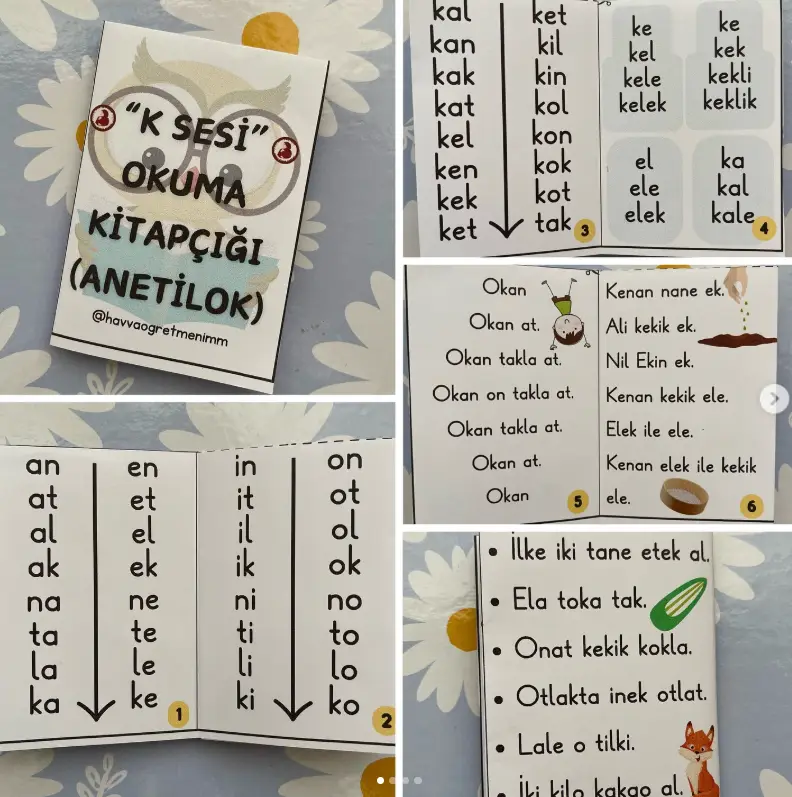 “K SESİ”
OKUMA
KİTAPÇIĞI
(ANETİLOK)
@havvaogretmenimm
kal
kan
kak
kat
kel
ken
kek
ket
ket
kil
kin
kol
kon
kok
kot
tak
3
ke
kel
kele
kelek
ke
kek
kekli
keklik
el
ele
elek
ka
kal
kale
4
an
at
al
ak
na
ta
la
ka
en
et
el
ek
ne
te
le
ke
1
in
it
il
ik
ni
ti
li
ki
on
ot
ol
ok
no
to
lo
ko
2
Okan
Okan at.
Okan takla at.
Okan on takla at.
Okan takla at.
Okan at.
Okan
5
Kenan nane ek.
Ali kekik ek.
Nil Ekin ek.
Kenan kekik ele.
Elek ile ele.
Kenan elek ile kekik
ele.
6
• İlke iki tane etek al.
• Ela toka tak.
• Onat kekik kokla.
• Otlakta inek otlat.
• Lale o tilki.
• İki kilo kakao al.